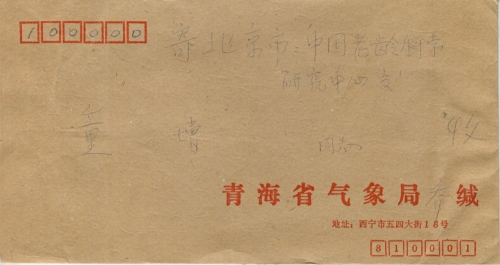 100000
寄北京市:中国老龄科学
研究中心交
童 博 同志 收
青海省气象局 缄
地址:西宁市五四大街18号
810001